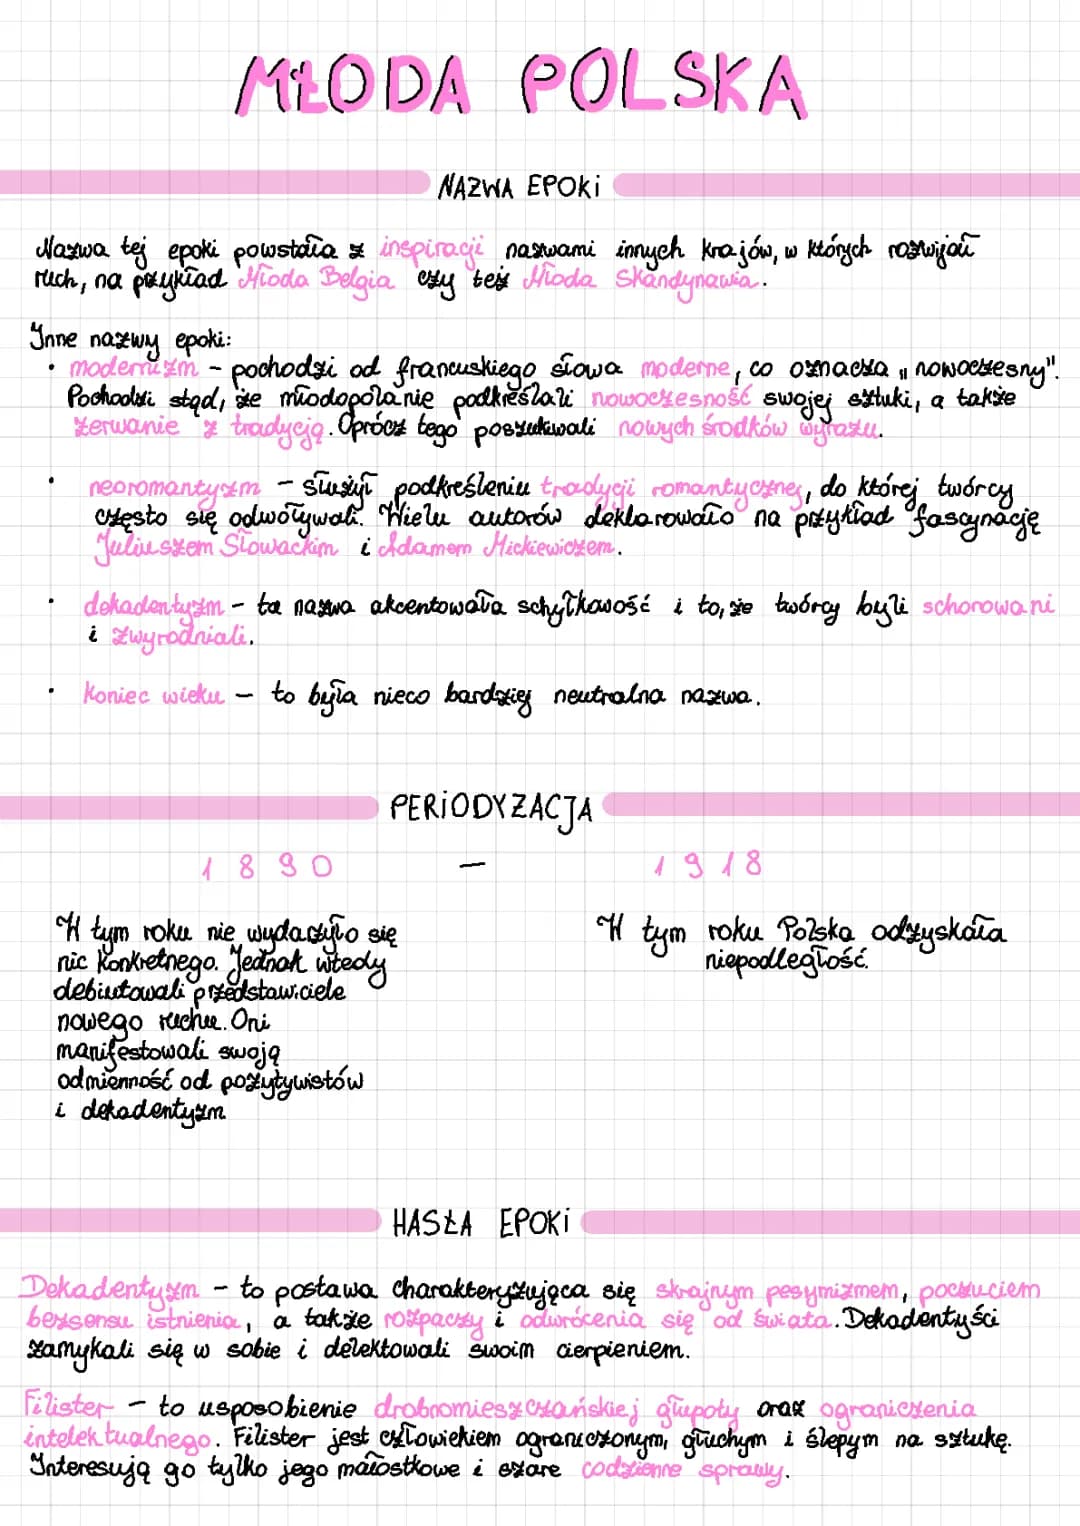 MŁODA POLSKA
NAZWA EPOKi
Nazwa tej epoki powstała z inspiracji nazwami innych krajów, w których rozwijał
ruch, na przykład Młoda Belgia czy też Młoda Skandynawia.
Inne nazwy epoki:
• modernizm - pochodzi od francuskiego słowa moderne, co oznacza „nowoczesny".
Pochodzi stąd, że młodopolanie podkreślali nowoczesność swojej sztuki, a także
zerwanie z tradycją. Oprócz tego poszukiwali nowych środków wyrazu.
• neoromantyzm - służył podkreśleniu tradycji romantycznej, do której twórcy
często się odwoływali. Wielu autorów deklarowało na przykład fascynację
Juliuszem Słowackim i Adamem Mickiewiczem.
• dekadentyzm - ta nazwa akcentowała schyłkowość i to, że twórcy byli schorowani
i zwyrodniali.
• koniec wieku - to była nieco bardziej neutralna nazwa.
PERiODYZACJA
1890 - 1918
W tym roku nie wydarzyło się
nic konkretnego. Jednak wtedy
debiutowali przedstawiciele
nowego ruchu. Oni
manifestowali swoją
odmienność od pozytywistów
i dekadentyzm
W tym roku Polska odzyskała
niepodległość.
HASŁA EPOKi
Dekadentyzm - to postawa charakteryzująca się skrajnym pesymizmem, poczuciem
bezsensu istnienia, a także rozpaczy i odwrócenia się od świata. Dekadentyści
zamykali się w sobie i delektowali swoim cierpieniem.
Filister - to usposobienie drobnomieszczańskiej głupoty oraz ograniczenia
intelektualnego. Filister jest człowiekiem ograniczonym, głuchym i ślepym na sztukę.
Interesują go tylko jego małostkowe i szare codzienne sprawy.